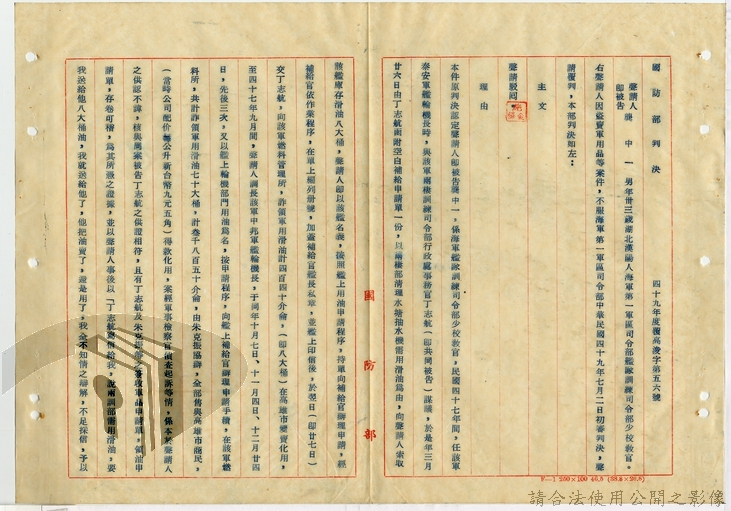 國防部判決
四十九年度覆高淩字第五六號
聲請人
即被告
龔中一 男年卅三歲湖北漢陽人海軍第一軍區司令部艦艇訓練司令部少校教官。
右聲請人因盜賣軍用品等案件,不服海軍第一軍區司令部中華民國四十九年七月二日初審判決,聲
請覆判,本部判決如左:
主文
聲請駁回。
理由
本件原判決認定聲請人即被告龔中一,係海軍艦艇訓練司令部少校教官,民國四十七年間,任該軍
泰安軍艦輪機長時,與該軍兩棲訓練司令部行政處事務官丁志航(即共同被告)謀議,於是年三月
廿六日由丁志航面附空白補給申請單一份,以兩棲部清理水塘抽水機需用滑油為由,向聲請人索取
國防部
該艦庫存滑油八大桶,聲請人即以該艦名義,按照艦上用油申請程序,持單向補給官辦理申請,經
補給官依作業程序,在單上編列册號,加蓋補給官職長私章,並艦上印信後,於翌日(即廿七日)
交丁志航,向該軍燃料管理所,詐領軍用滑油計四百四十介侖,(即八大桶)在高雄市變賣化用,
至四十七年九月間,聲請人調長該軍中邦軍艦輪機長,于同年十月七日、十一月四日、十二月廿四
日,先後三次,又以艦上輪機部門用油為名,按申請程序,向艦上補給官辦理申請手續,在該軍燃
料所,共計詐領軍用滑油七十大桶,計叁千八百五十介侖,由朱克振協助,全部售與高雄市商民,
(當時公司配價每公升新台幣九元五角)得款化用,案經軍事檢察官偵查起訴等情,係本於聲請人
之供認不諱,核與同案被告丁志航之供證相符,且有丁志航及朱克振簽收軍品申請單,領油申
請單,存卷可稽,為其所憑之證據,並以聲請人事後以「丁志航寄信給我,說兩訓部需用滑油,要
我送給他八大桶油,我就送給他了,他把油賣了,還是用了,我全不知情之辯解,不足採信,予以
F—1 250×100 49.5 (38.5×26.5)
請合法使用公開之影像